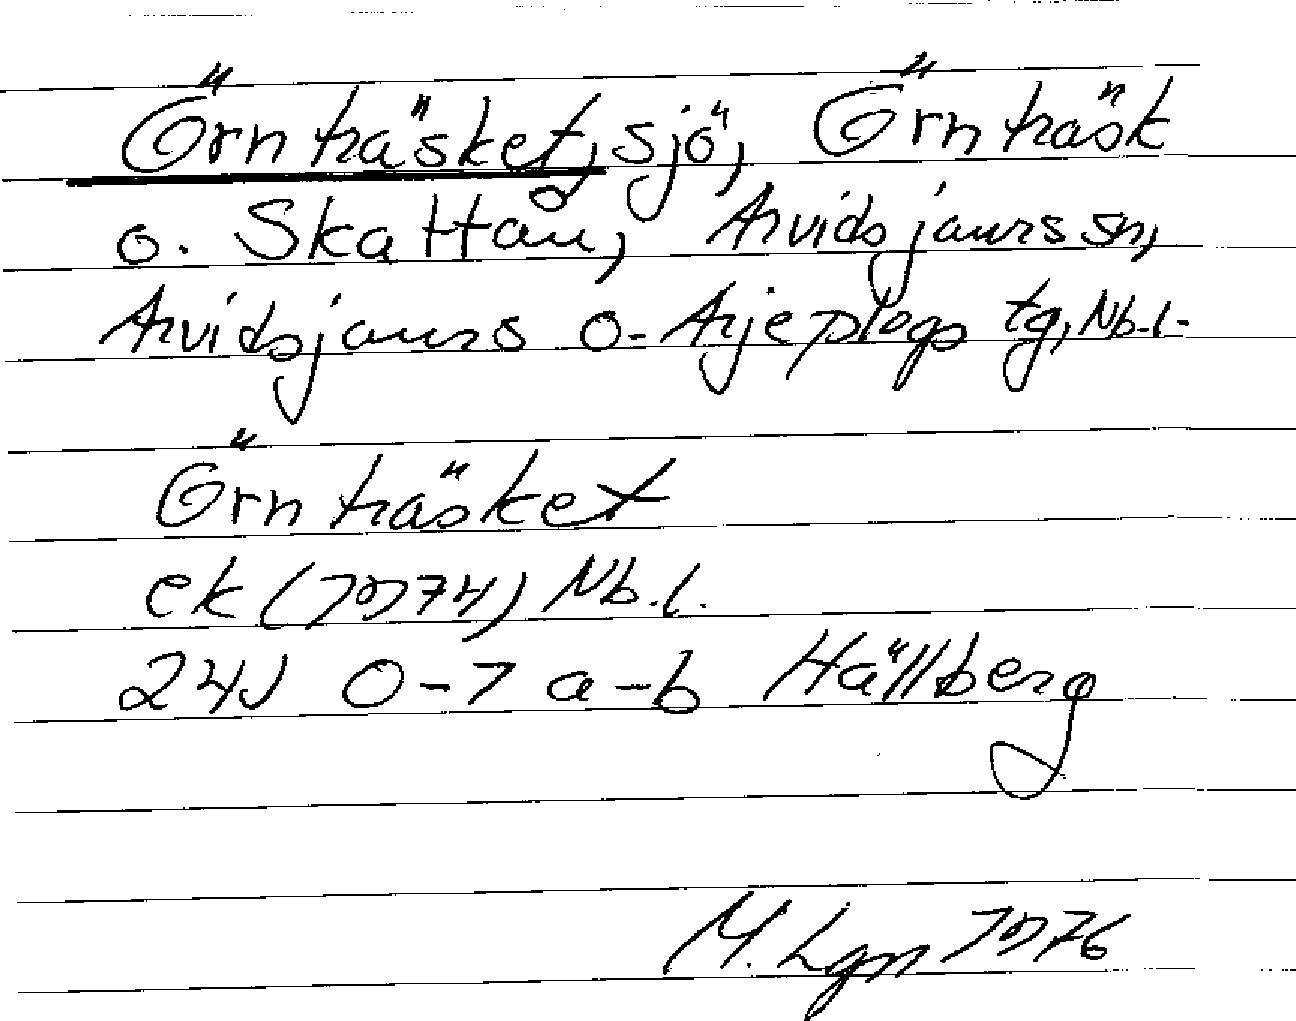 Örnträsket, sjö, Örnträsk
o. Skattån, Arvidsjaurs sn,
Arvidsjaurs o. Arjeplogs tg, Nb.l.
Örnträsket
ek (1974) Nb.l.
24J 0-1 a-b Hällberg
M. Lgn 1976